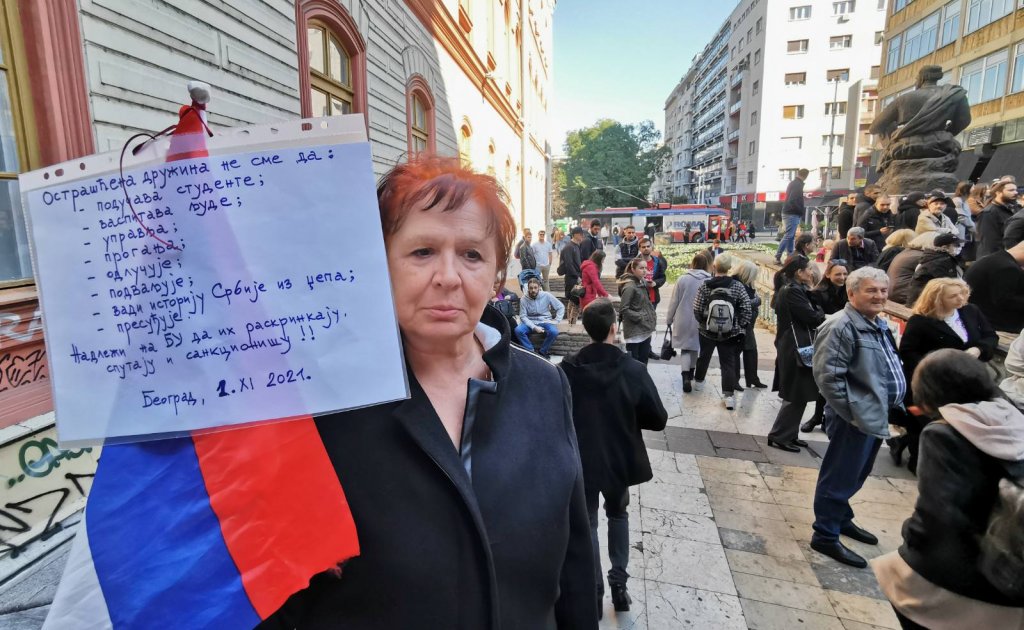 Острашћена дружина не сме да:
- подучава студенте;
- васпитава људе;
- управља;
- прогања;
- одлучује;
- подваљује;
- вади историју Србије из џепа;
- пресуђује!
Надлежи на БУ да их раскринкају,
спутају и санкционишу!!
Београд, 1. XI 2021.